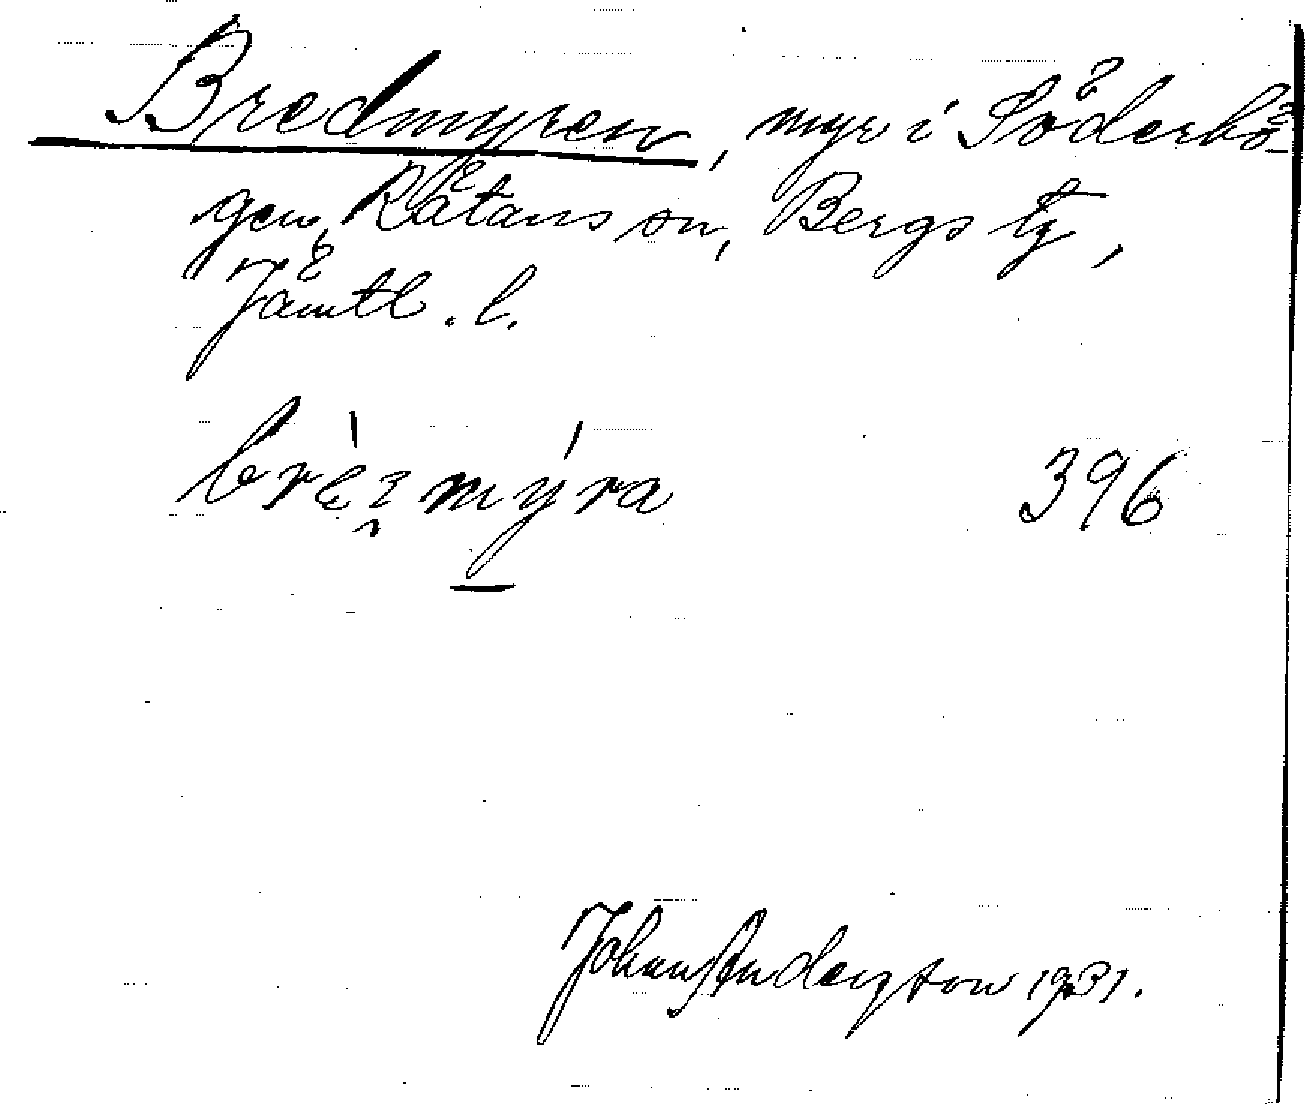 Bredmyren, myr i Söderhö-
gen, Rätans sn, Bergs tg,
Jämtl. l.
brèɜmýra 396
Johan Anderzson 1931.